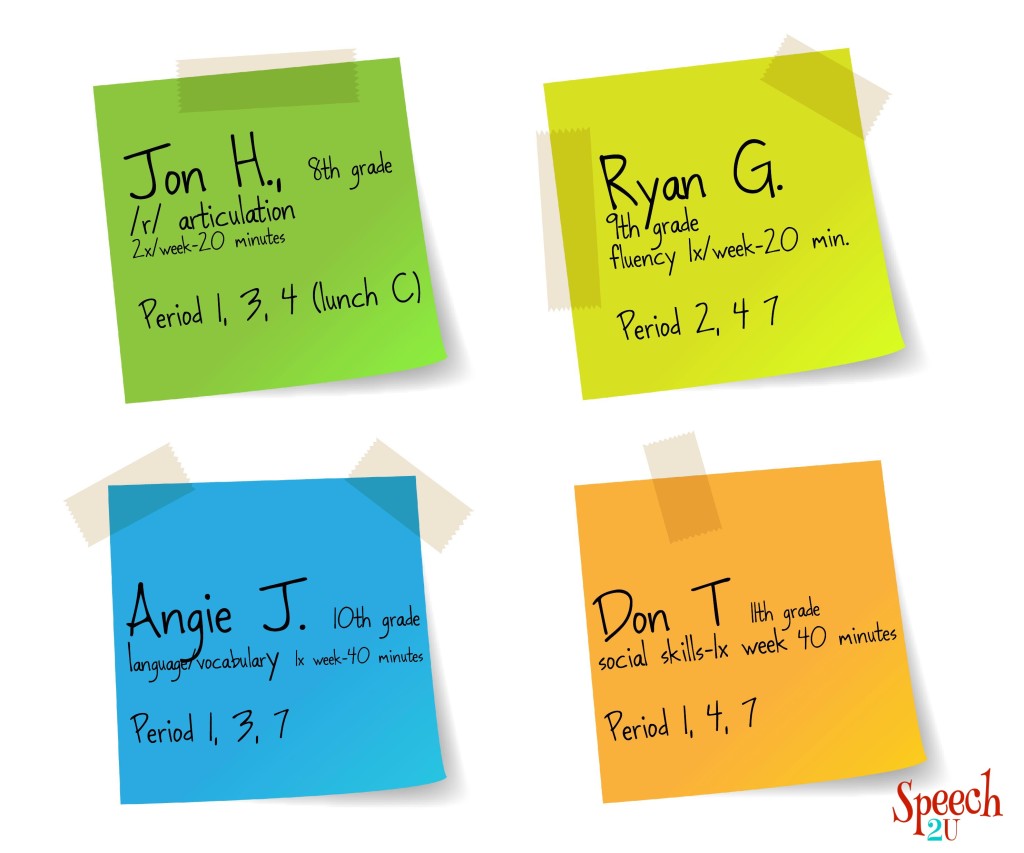 Jon H., 8th grade
/r/ articulation
2x/week-20 minutes
Period 1, 3, 4 (lunch C)
Ryan G.
9th grade
fluency 1x/week-20 min.
Period 2, 4 7
Angie J. 10th grade
language/vocabulary 1x week-40 minutes
Period 1, 3, 7
Don T 11th grade
social skills-1x week 40 minutes
Period 1, 4, 7
Speech
2U